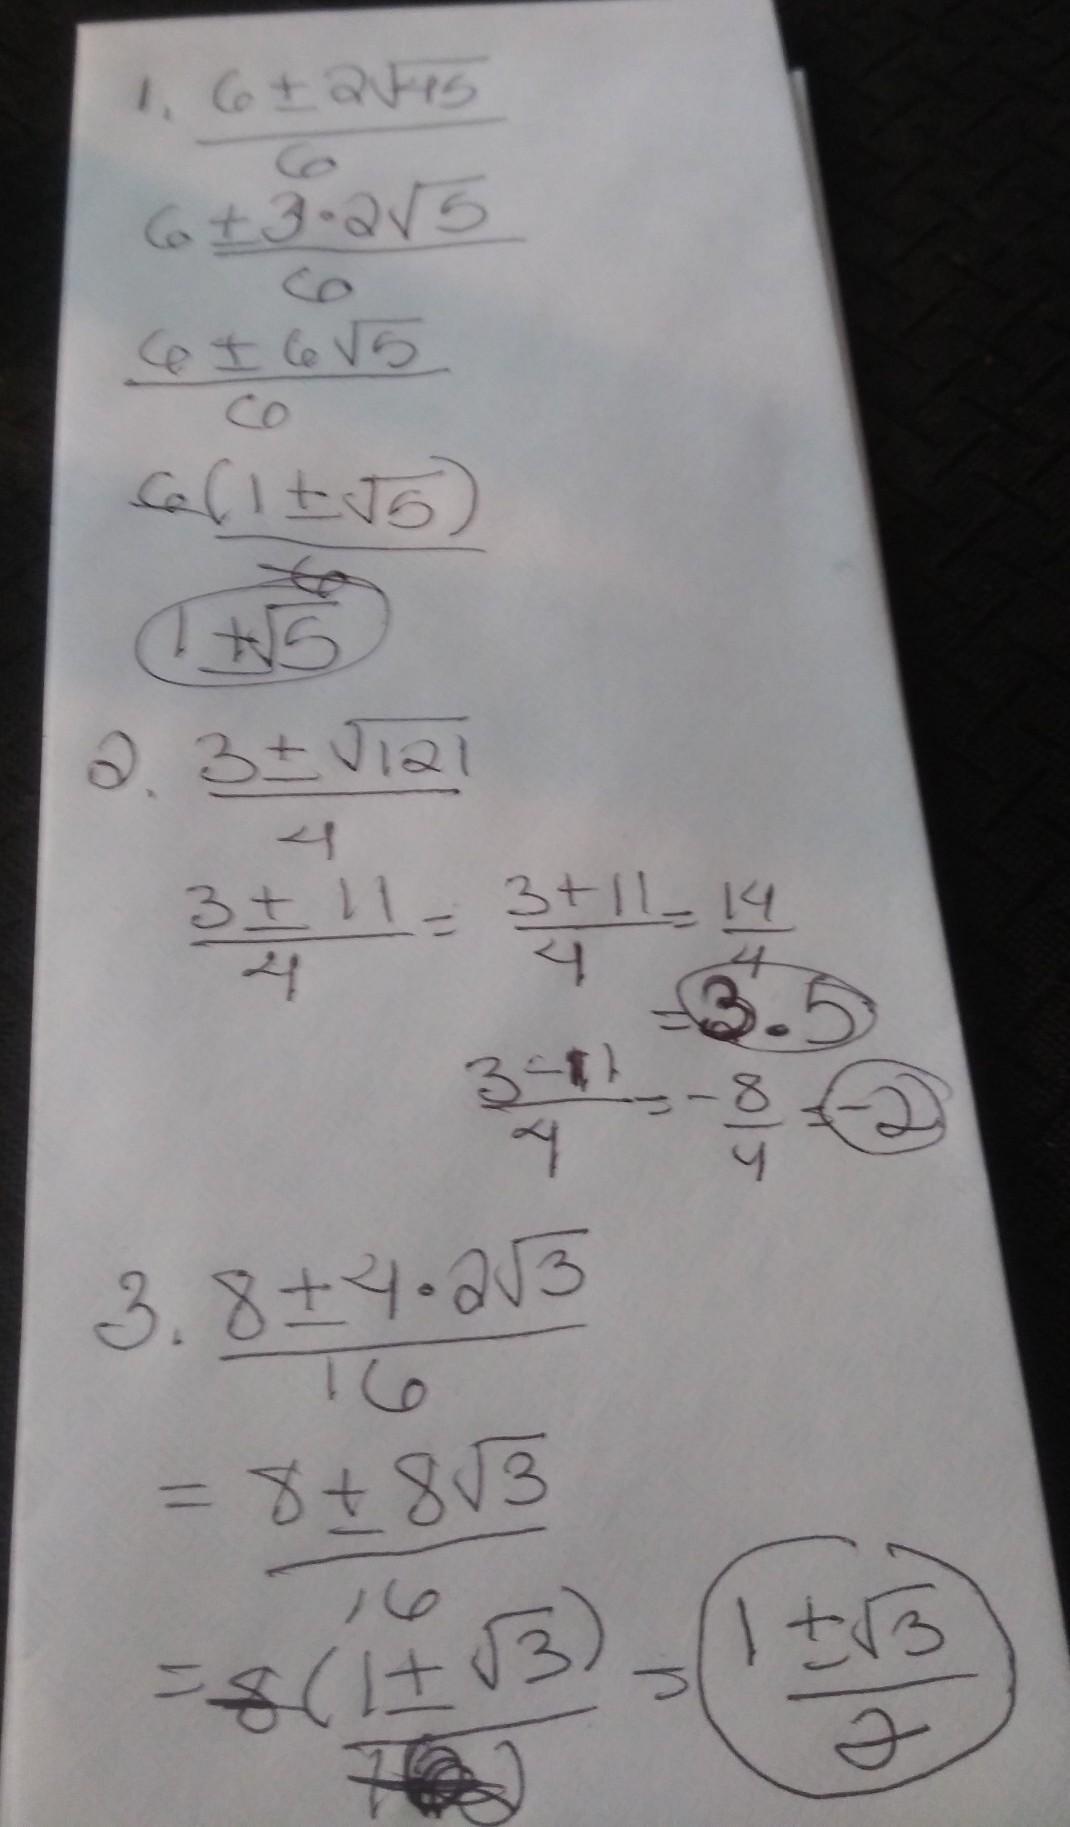 1. 6 ± 2√45
6
6 ± 3·2√5
6
6 ± 6√5
6
6(1 ± √5)
6
1 ± √5
2. 3 ± √121
4
3 ± 11 = 3 + 11 = 14
4 4 4
= 3.5
3 - 11 = - 8 = -2
4 4
3. 8 ± 4·2√3
16
= 8 ± 8√3
16
= 8(1 ± √3) = 1 ± √3
2